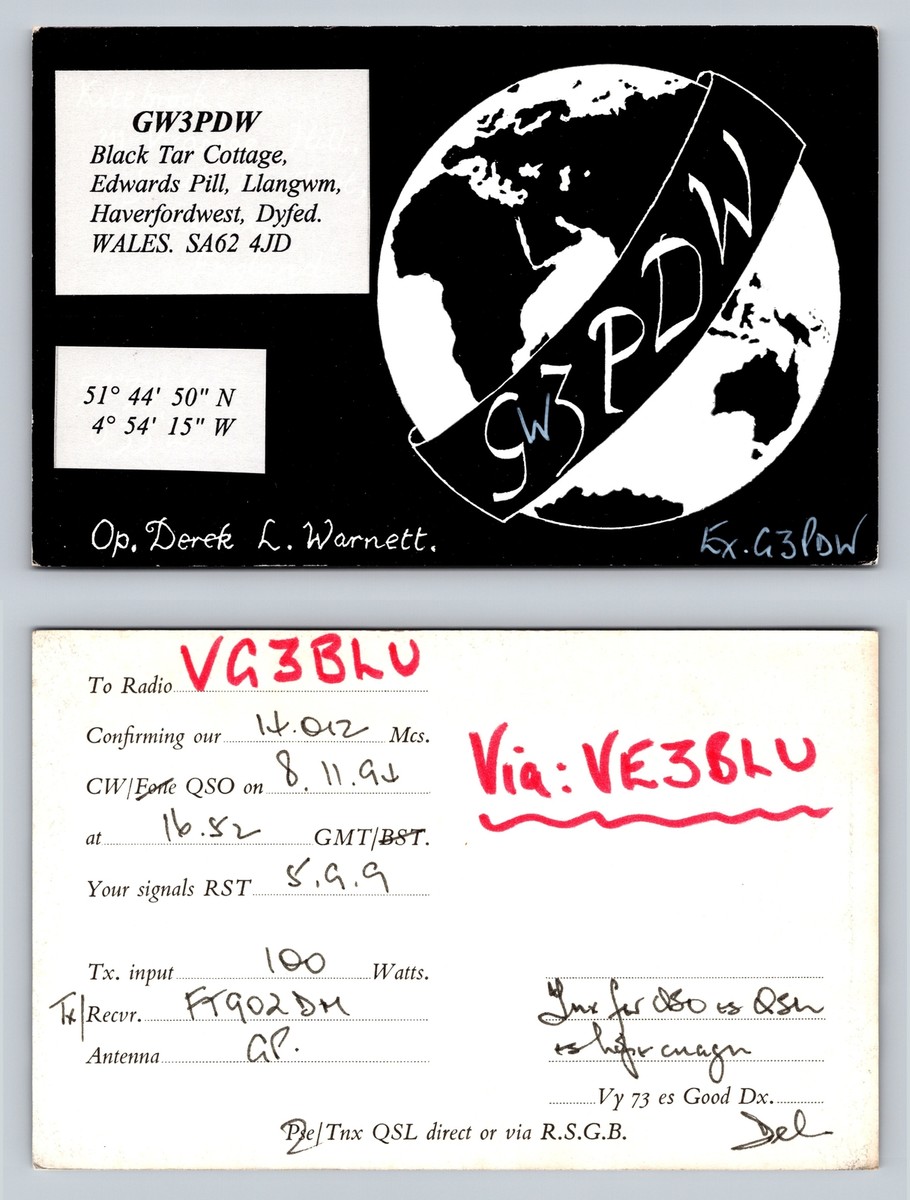 GW3PDW
Black Tar Cottage,
Edwards Pill, Llangwm,
Haverfordwest, Dyfed.
WALES. SA62 4JD
51° 44' 50" N
4° 54' 15" W
GW3PDW
Op. Derek L. Warnett.
Ex. G3PDW
To Radio VG3BLU
Confirming our 14.012 Mcs.
Via: VE3BLU
CW/Fone QSO on 8.11.91
at 16.52 GMT/BST.
Your signals RST 5.9.9
Tx. input 100 Watts.
Tx/Recvr. FT902DM
Tnx for QSO es QSL
Antenna GP.
es hpe cuagn
Vy 73 es Good Dx.
Pse/Tnx QSL direct or via R.S.G.B.
Del